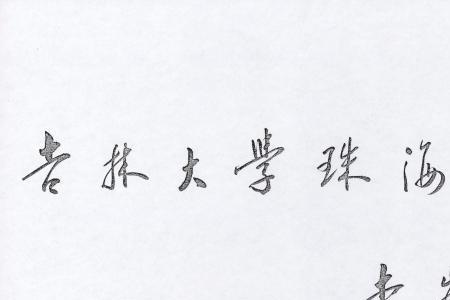 吉林大學珠海